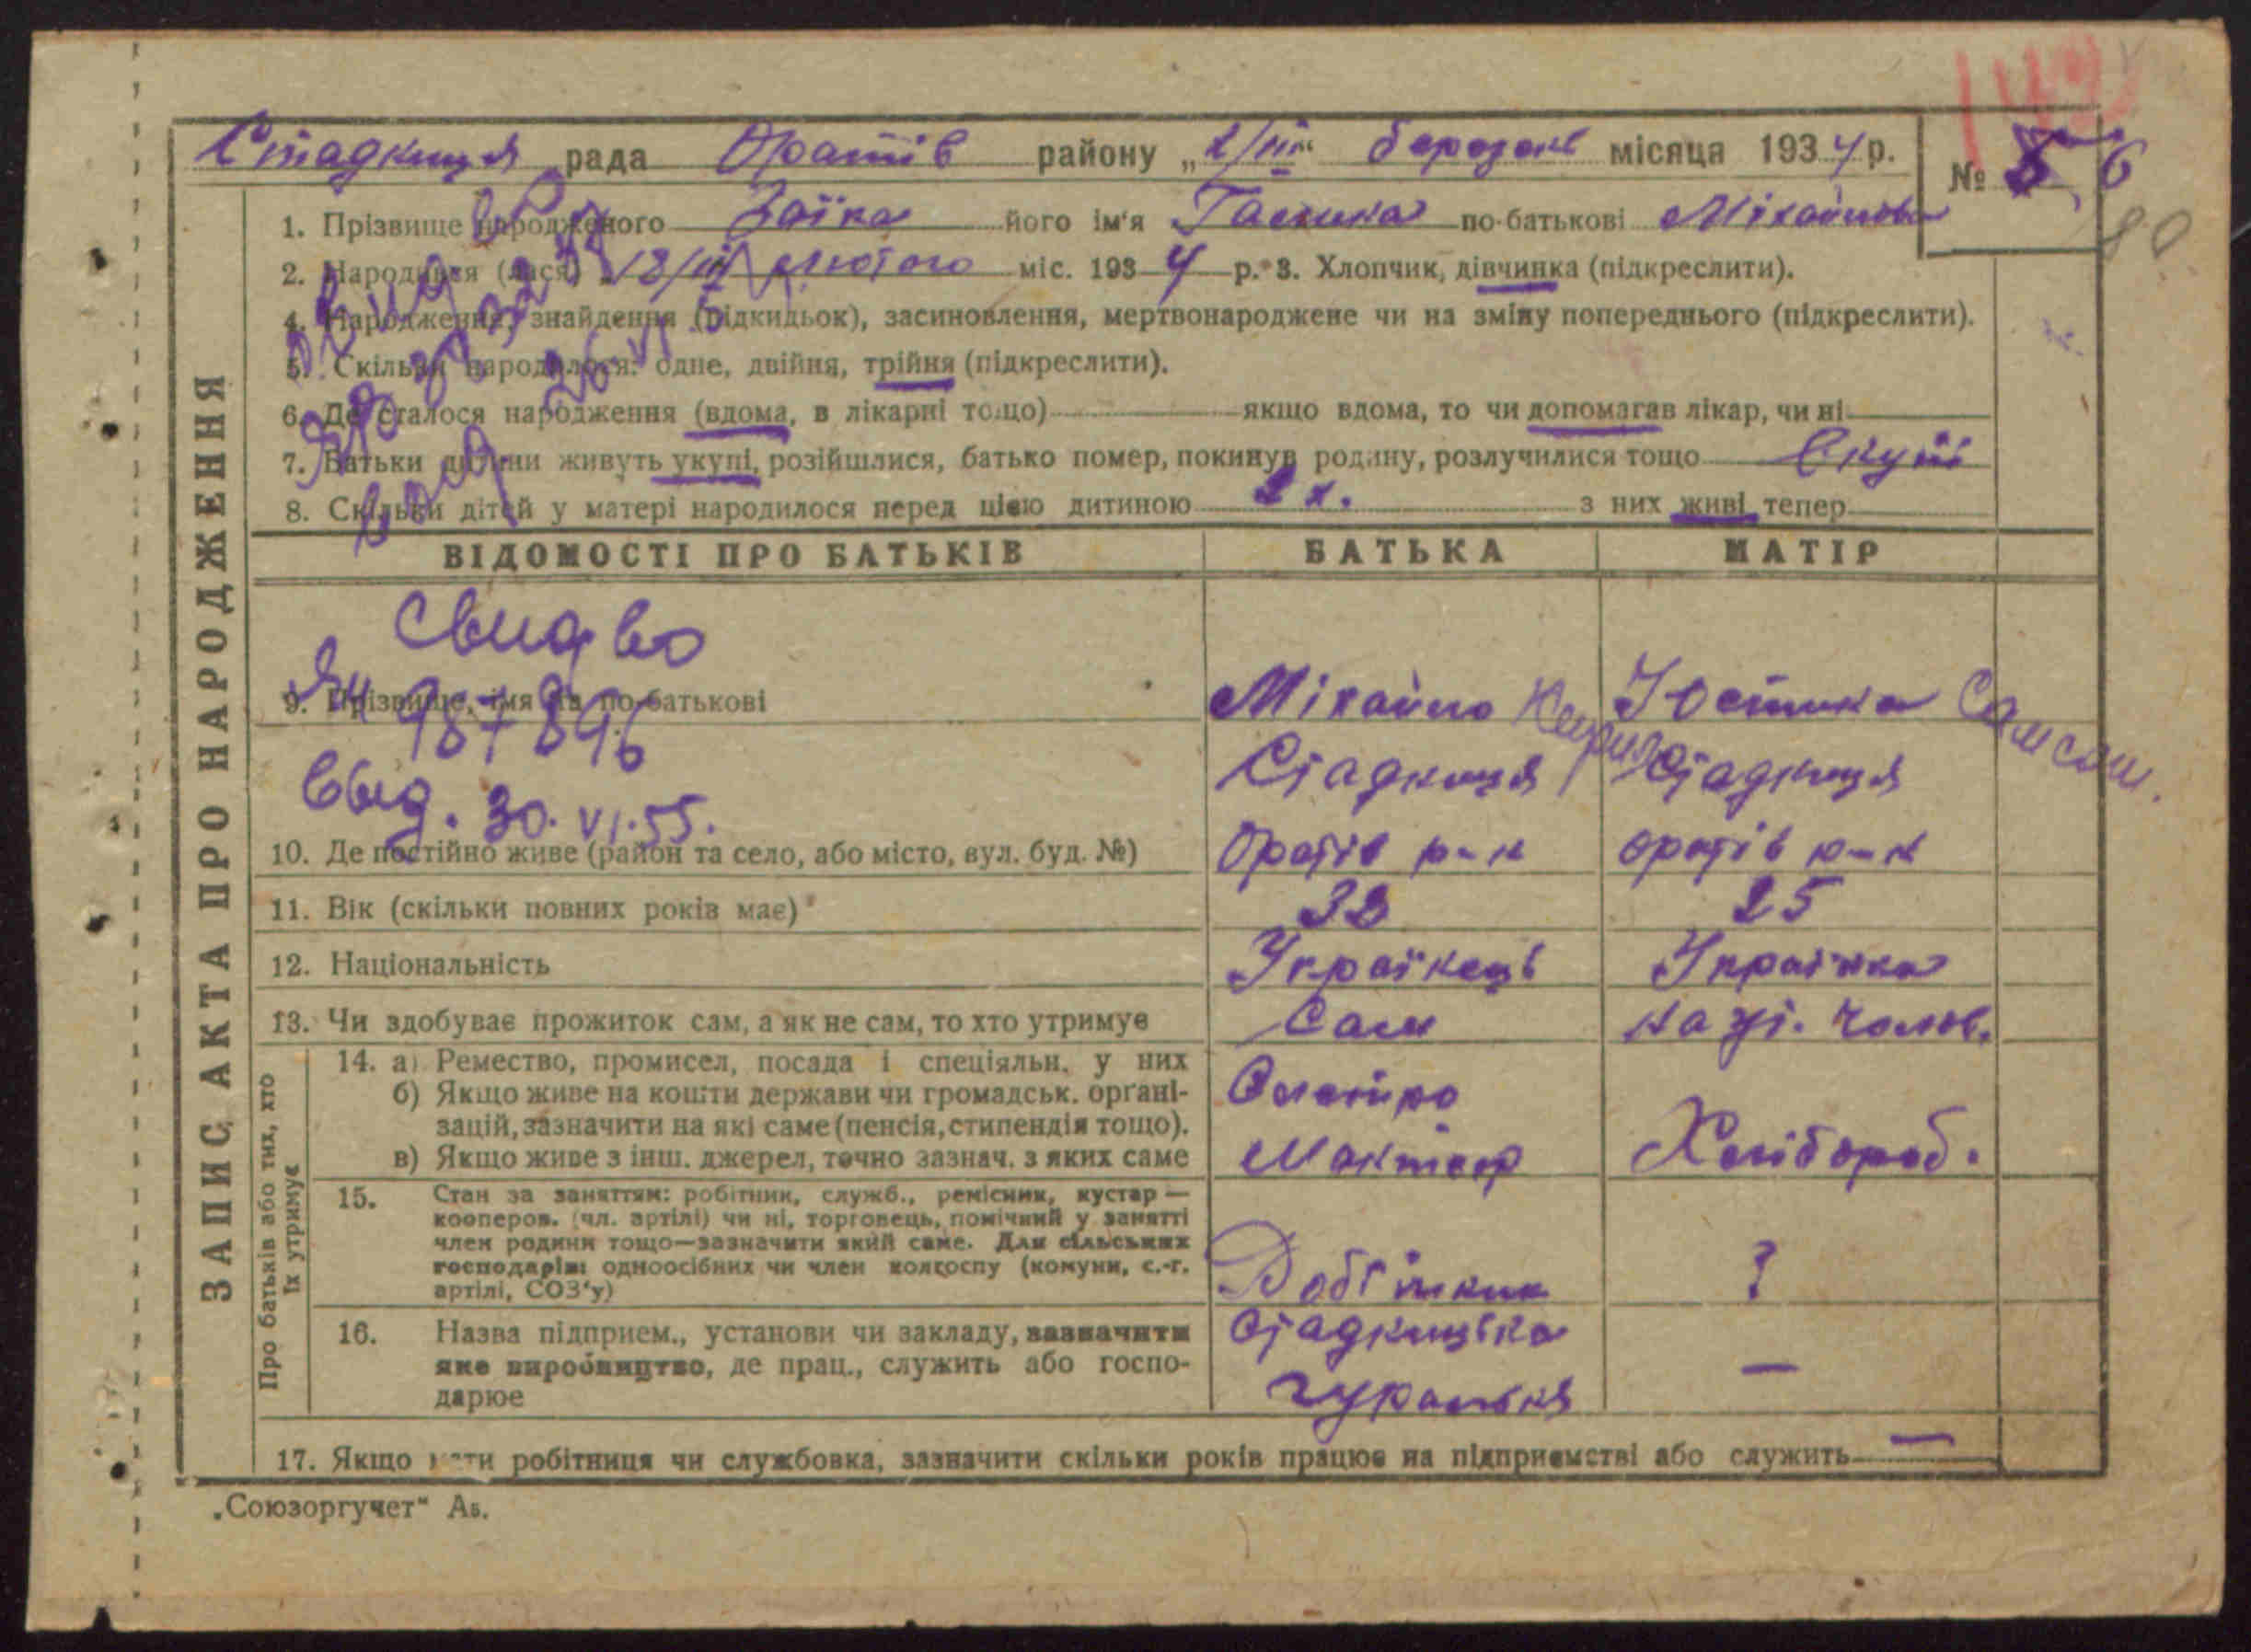 149
Стадниця рада Оратів району „2/III“ березень місяця 1934 р.
№ 6
80
1. Прізвище народженого Заїка його ім'я Галина по-батькові Міхайлов
2. Народився (лася) 18/II лютого міс. 1934 р. 3. Хлопчик, дівчинка (підкреслити).
4. Народження, знайдення (підкидьок), засиновлення, мертвонароджене чи на зміну попереднього (підкреслити).
5. Скільки народилося: одне, двійня, трійня (підкреслити).
6. Де сталося народження (вдома, в лікарні тощо) якщо вдома, то чи допомагав лікар, чи ні
7. Батьки дитини живуть укупі, розійшлися, батько помер, покинув родину, розлучилися тощо Вкупі
8. Скільки дітей у матері народилося перед цією дитиною 2 х. з них живі тепер
ЗАПИС АКТА ПРО НАРОДЖЕННЯ
ВІДОМОСТІ ПРО БАТЬКІВ БАТЬКА МАТІР
Свид во
987896
Выд. 30.VI.55.
9. Прізвище, імя та по-батькові Міхайло Юстина Самсон.
Стадниця Стадниця
10. Де постійно живе (район та село, або місто, вул. буд. №) Оратів р-н Оратів р-н
11. Вік (скільки повних років має) 32 25
12. Національність Українець Українка
13. Чи здобуває прожиток сам, а як не сам, то хто утримує Сам на уті. чолов.
Про батьків або тих, хто їх утримує
14. а) Ремество, промисел, посада і спеціяльн. у них
б) Якщо живе на кошти держави чи громадськ. орґані-
зацій, зазначити на які саме (пенсія, стипендія тощо).
в) Якщо живе з інш. джерел, точно зазнач. з яких саме Хлібороб.
15. Стан за заняттям: робітник, служб., ремісник, кустар —
кооперов. (чл. артілі) чи ні, торговець, помічний у занятті
член родини тощо—зазначити який саме. Для сільських
господарів: одноосібних чи член колгоспу (комуни, с.-г.
артілі, СОЗ'у) Робітник ?
16. Назва підприєм., установи чи закладу, зазначити Стадницька
яке виробництво, де прац., служить або госпо- —
дарює гуральня
17. Якщо мати робітниця чи службовка, зазначити скільки років працює на підприємстві або служить —
„Союзоргучет“ Аб.